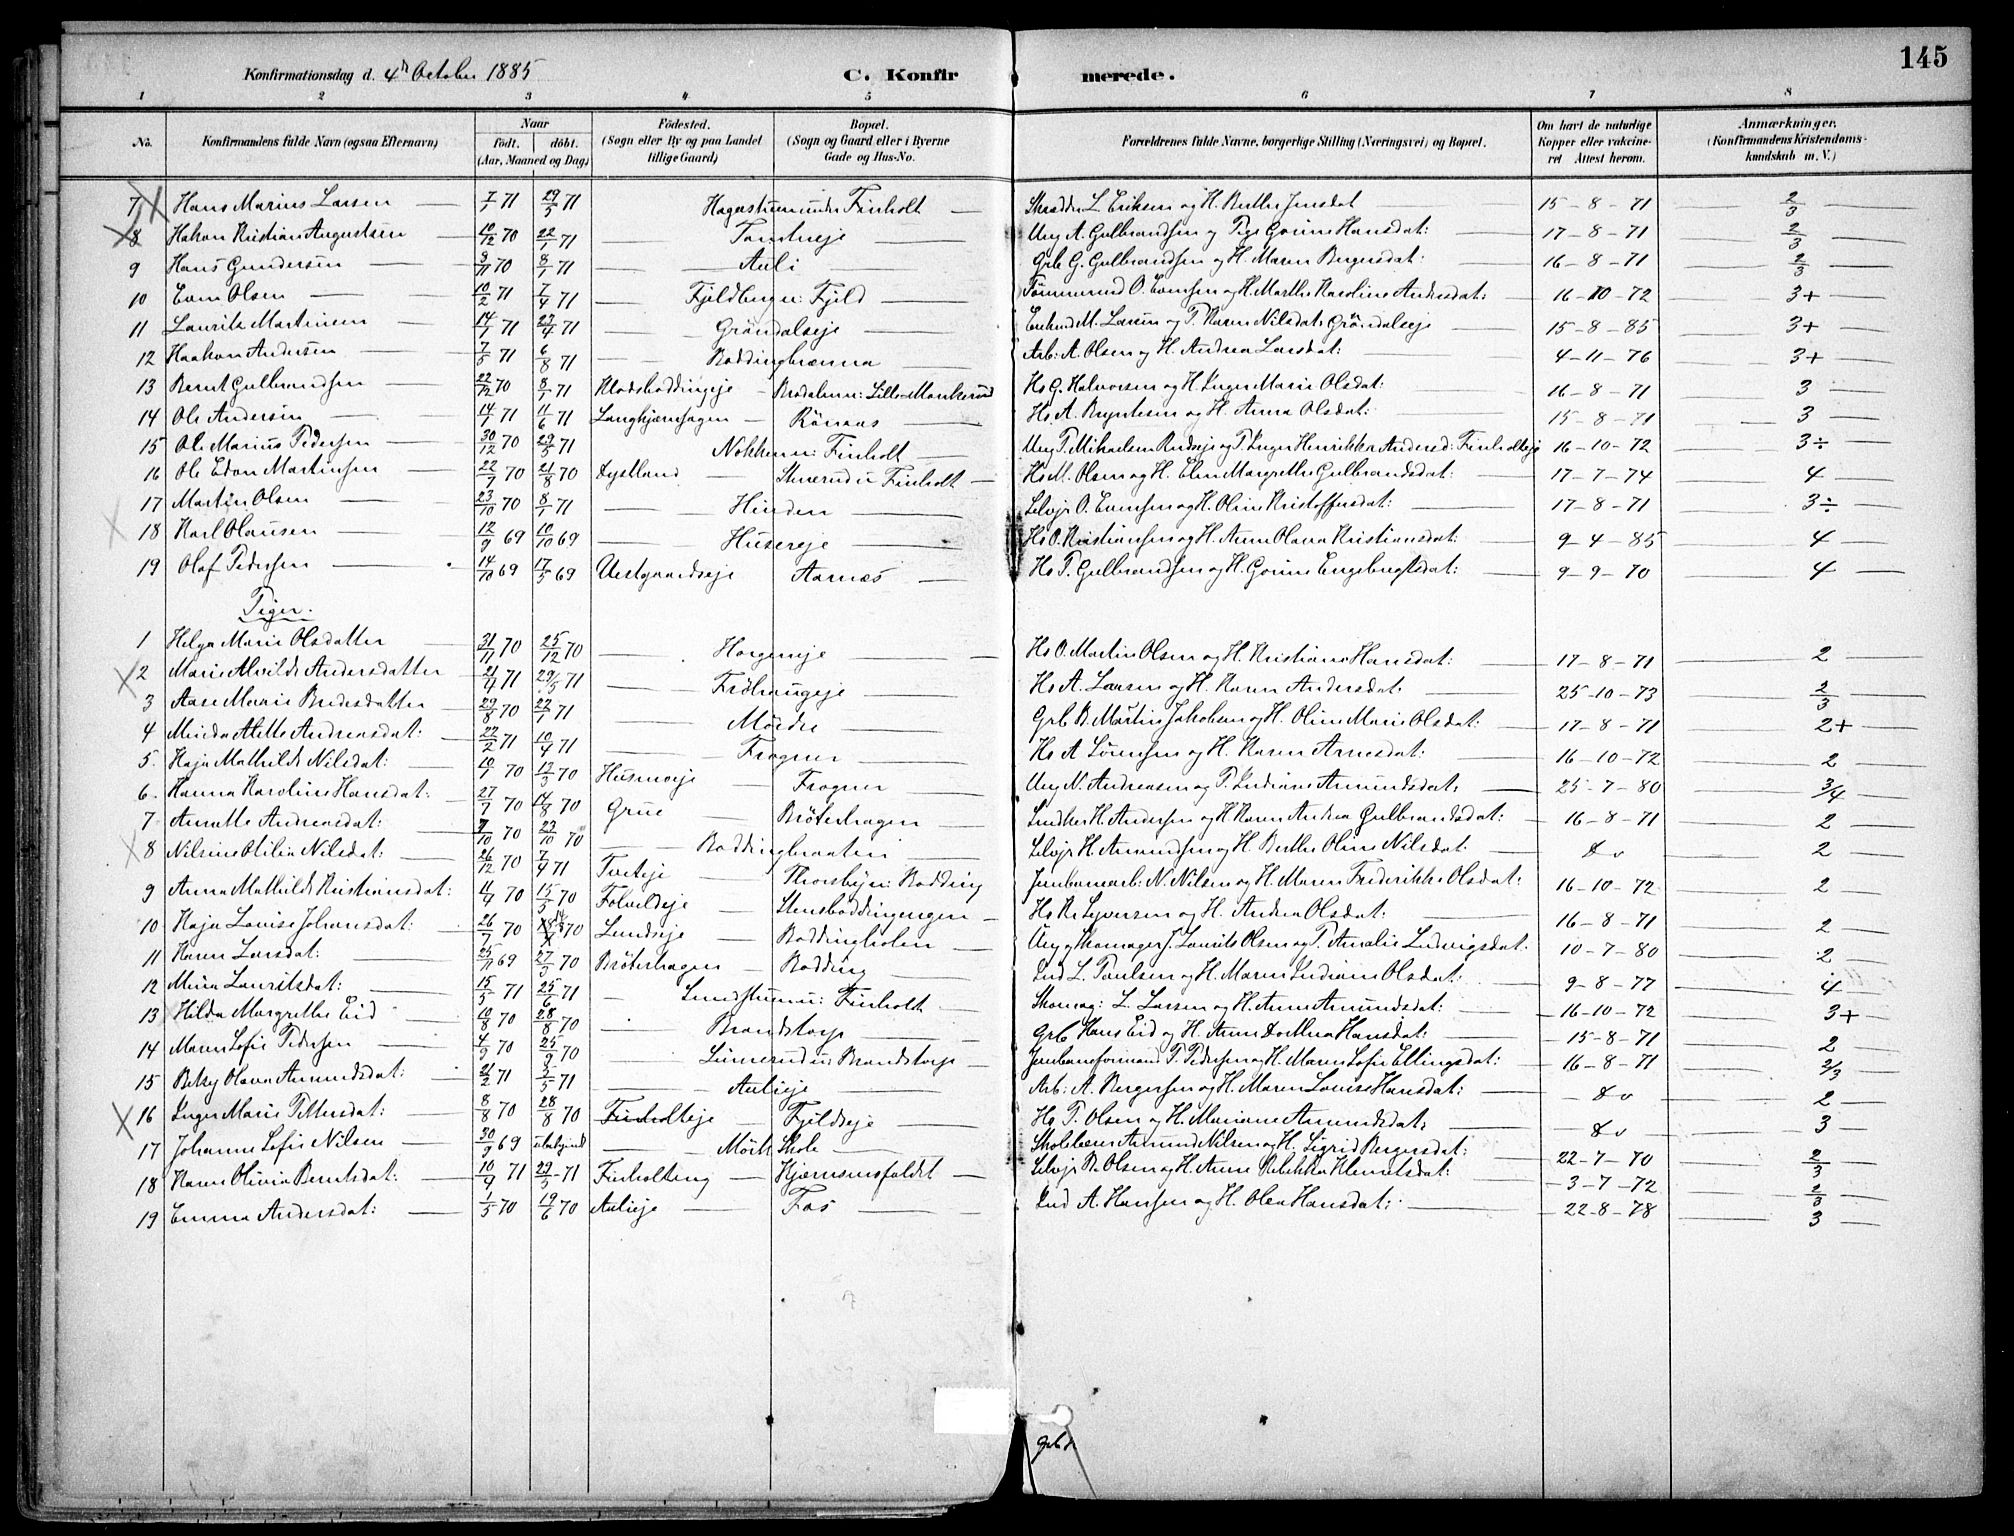 145
Konfirmationsdag d. 4de October 1885 C. Konfirmerede.
1 2 3 4 5 6 7 8
No. Konfirmandens fulde Navn (ogsaa Efternavn) Naar født. døbt. (Aar, Maaned og Dag) Fødested. (Sogn eller By og paa Landet tillige Gaard) Bopæl. (Sogn og Gaard eller i Byerne Gade og Hus-No.) Forældrenes fulde Navne, borgerlige Stilling (Næringsvei) og Bopæl. Om havt de naturlige Kopper eller vakcineret. Attest herom. Anmærkninger. (Konfirmandens Kristendomskundskab m. V.)
7 Hans Marius Larsen 7/1 71 29/5 71 Hagastuen under Finholt Skrædder L. Eriksen og H. Berthe Jensdat 15-8-71 2/3
8 Hakon Kristian Augustsen 10/12 70 22/1 71 Tomteeje Ung A. Gulbrandsen og Pige Gorine Hansdat: 17-8-71 2/3
9 Hans Gundersen 9/11 70 8/1 71 Auli Grb G. Gulbrandsen og H. Maren Bergersdat: 16-8-71 2/3
10 Even Olsen 10/2 71 7/4 71 Fjeldberg u: Fjeld Tømmermd O. Evensen og H. Marthe Karoline Andersdat: 16-10-72 3+
11 Laurits Martinsen 14/1 71 23/4 71 Gröndalseje Enkemd M. Larsen og P. Karen Nilsdat: Gröndalseje 15-8-85 3+
12 Haakon Andersen 7/5 71 6/8 71 Roddingbrænna Arb: A. Olsen og H. Andrea Larsdat: 4-11-76 3+
13 Bernt Gulbrandsen 22/12 70 8/1 71 Klodsboddingeje Lille-Monkerud Hs G. Halvorsen og H. Inger Marie Olsdat: 16-8-71 3
14 Ole Andersen 14/1 71 11/6 71 Rönaas Hs A. og H. Anna Olsdat: 15-8-71 3
15 Ole Marius Pedersen 30/12 70 29/5 71 Nokken u: Finholt Ung P. Mikaelsen Rudseje og P. Inger Henrikke Andersd: Finholteje 16-10-72 3÷
16 Ole Edon Martinsen 22/7 70 21/8 70 Dystland under Finholt Hs M. Olsen og H. Elen Margrethe Gulbrandsdat: 17-7-74 4
17 Martin Olsen 23/10 70 8/1 71 Hinden Selvejr O. Evensen og H. Oline Kristoffersdat: 17-8-71 3÷
18 Karl Olausen 12/9 69 10/10 69 Husereje Hs O. Kristiansen og H. Anne Olava Kristiansdat: 9-4-85 4
19 Olaf Pedersen 14/10 69 17/5 69 Vestgaardseje Aarnæs Hs P. Gulbrandsen og H. Gorine Engebregtsdat: 9-9-70 4
Piger.
1 Helga Marie Olsdatter 31/11 70 25/12 70 Horgeneje Hs O. Martin Olsen og H. Kristiane Hansdat: 17-8-71 2
2 Marie Alvilde Andersdatter 21/4 71 29/5 71 Fröhaugeje Hs A. Larsen og H. Karen Andersdat: 25-10-73 2/3
3 Aase Marie Berdesdatter 29/8 70 22/1 71 Mördre Grb B. Martin Jakobsen og H. Oline Marie Olsdat: 17-8-71 2+
4 Minda Alette Andreasdat: 22/2 71 10/4 71 Frogner Hs A Sörensen og H. Karen Arnesdat: 16-10-72 2
5. Kaja Mathilde Nilsdat: 10/1 70 13/3 70 Husmoeje Frogner Ung N. Andreasen og P. Indiane Amundsdat: 25-7-80 3/4
6. Hanna Karoline Hansdat: 27/7 70 14/8 70 Grue Bröterhagen H. Andersen og H Karen Andrea Gulbrandsdat: 16-8-71 2
7 Annette Andreasdat: 9/10 70 23/10 70 Roddingbraaten Selvejr H. Amundsen og H. Berthe Oline Nilsdat: do 2
8 Nilsine Otilia Nilsdat: 26/12 70 7/4 71 Tveteje Thorsbÿe: Rodding Jernbanearb: N. Nilsen og H. Maren Frederikke Olsdat: 16-10-72 2
9 Anna Mathilde Kristiansdat: 11/4 70 15/5 70 Folvildseje Hs Kr Syversen og H. Andrea Olsdat: 16-8-71 2
10 Kaja Louise Johansdat: 26/7 70 70 Lundseje Roddingholen Ung og Skomager J. Laurits Olsen og P. Amalie Ludvigsdat: 10-7-80 2
11 Karen Larsdat: 25/11 69 27/3 70 Bröterhagen Rodding Ind L. Paulsen og H. Maren Indiane Olsdat: 9-8-77 4
12 Mina Lauritsdat: 15/5 71 25/6 71 Lundstuen u: Finholt Skomag: L. Larsen og H. Anne Amundsdat: 16-10-72 3+
13 Hilda Margrethe Eid 10/8 70 28/8 70 Brandstorp Grb Hans Eid og H. Anne Dorthea Hansdat: 15-8-71 2
14 Maren Sofie Pedersen 4/9 70 25/9 70 Brandstorp Jernbaneformand P. Pedersen og H. Maren Sofie Ellingsdat: 16-8-71 2/3
15 Betsy Olava Amundsdat: 21/2 71 5/5 71 Aulieje Arb: A. Bergersen og H. Maren Louise Hansdat: do 2
16 Inger Marie Pettersdat: 8/8 70 28/8 70 Finholteje Fjeldseje Hs P. Olsen og H. Mariane Amundsdat: do 3
17 Johanne Sofie Nilsen 30/9 69 Mörk Skole Amund Nilsen og H. Sigrid Bergersdat: 22-7-70 2/3
18 Karen Olivia Berntsdat: 10/9 71 29/5 71 Selvejr B. Olsen og H. Anne Rebekka Klemetsdat: 3-7-72 2/3
19 Emma Andersdat: 1/5 70 19/6 70 Aulieje Fos Ind A. Hansen og H. Olea Hansdat: 22-8-78 3